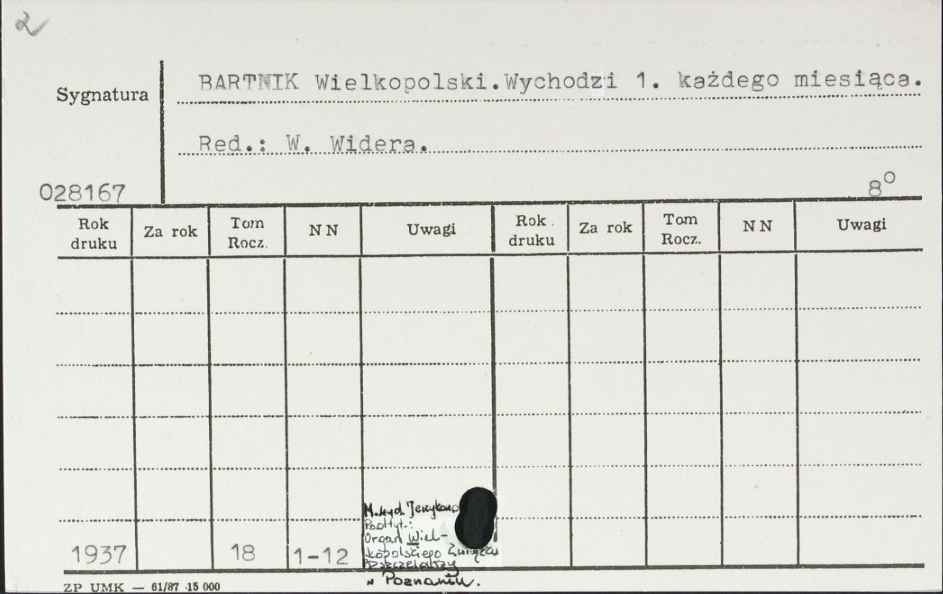 2
BARTNIK Wielkopolski.Wychodzi 1. każdego miesiąca.
Sygnatura
Red.: W. Widera.
028167
8°
Rok druku Za rok Tom Rocz. NN Uwagi Rok druku Za rok Tom Rocz. NN Uwagi
M.wyd.
Podtyt.:
Organ Wiel-
kopolskiego Związku
Pszczelarzy
w Poznaniu.
1937 18 1-12
ZP UMK — 61/87 15 000